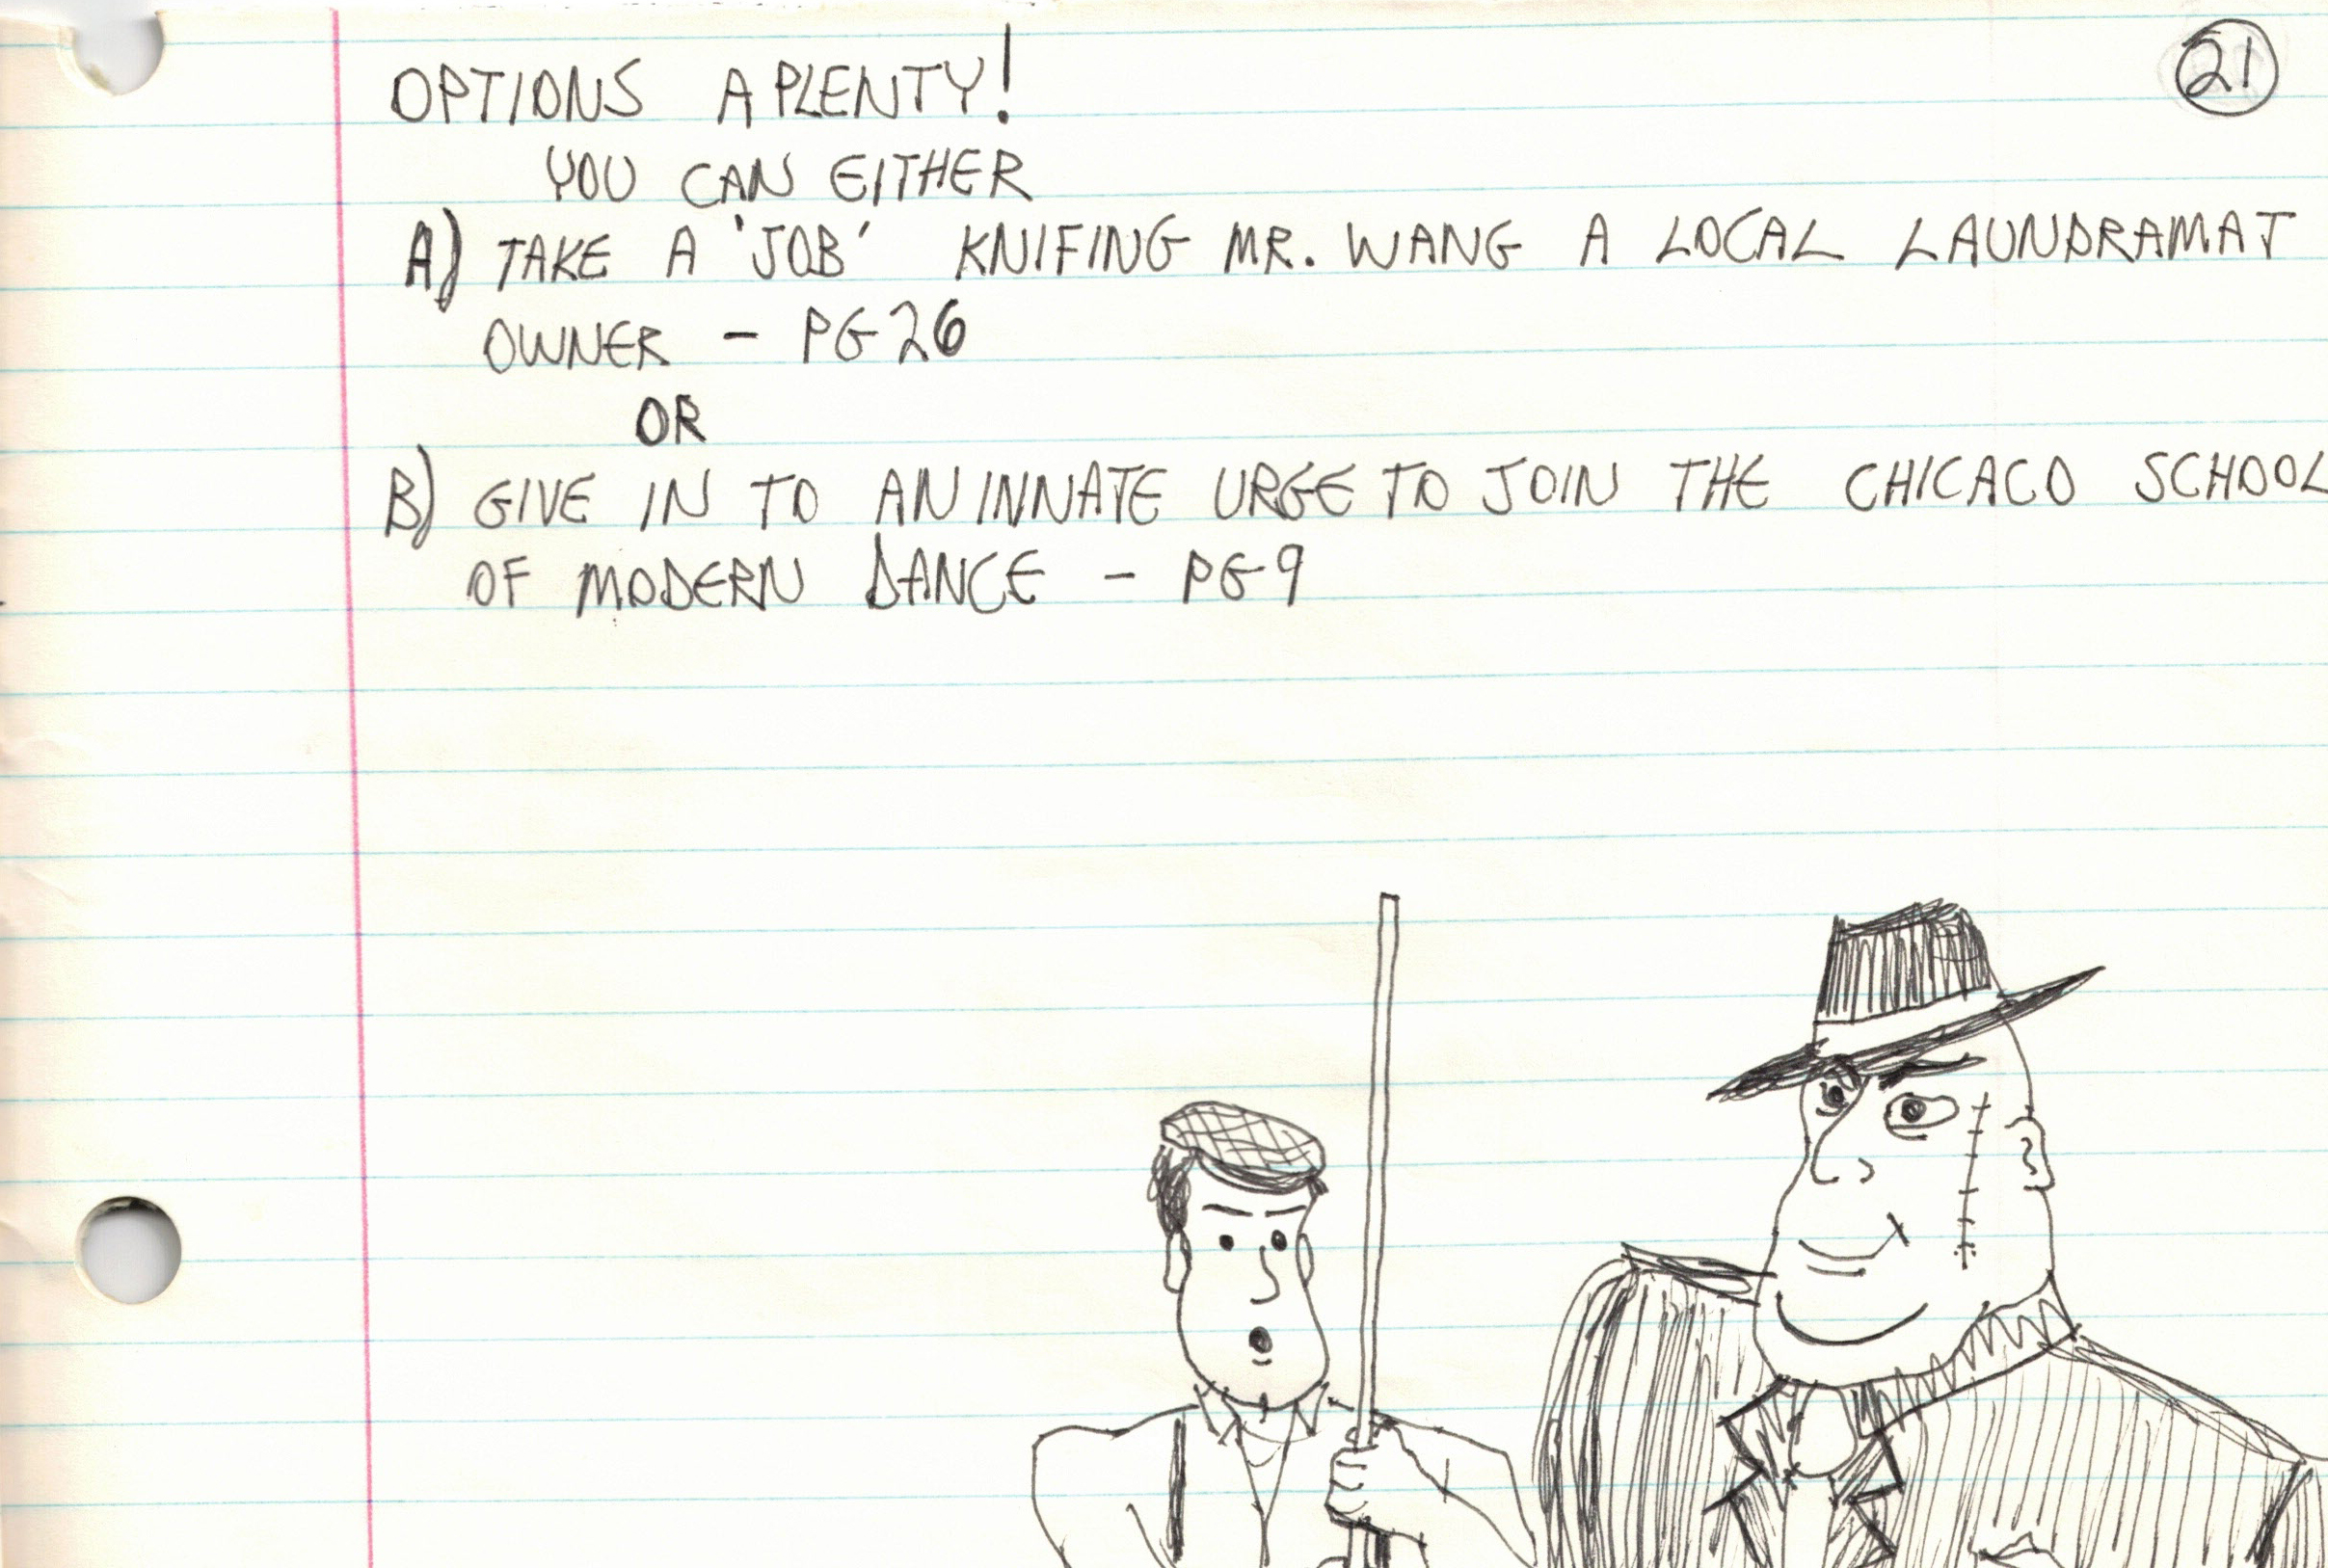 21
OPTIONS APLENTY!
YOU CAN EITHER
A) TAKE A 'JOB' KNIFING MR. WANG A LOCAL LAUNDRAMAT
OWNER - PG 26
OR
B) GIVE IN TO AN INNATE URGE TO JOIN THE CHICACO SCHOOL
OF MODERN DANCE - PG 9